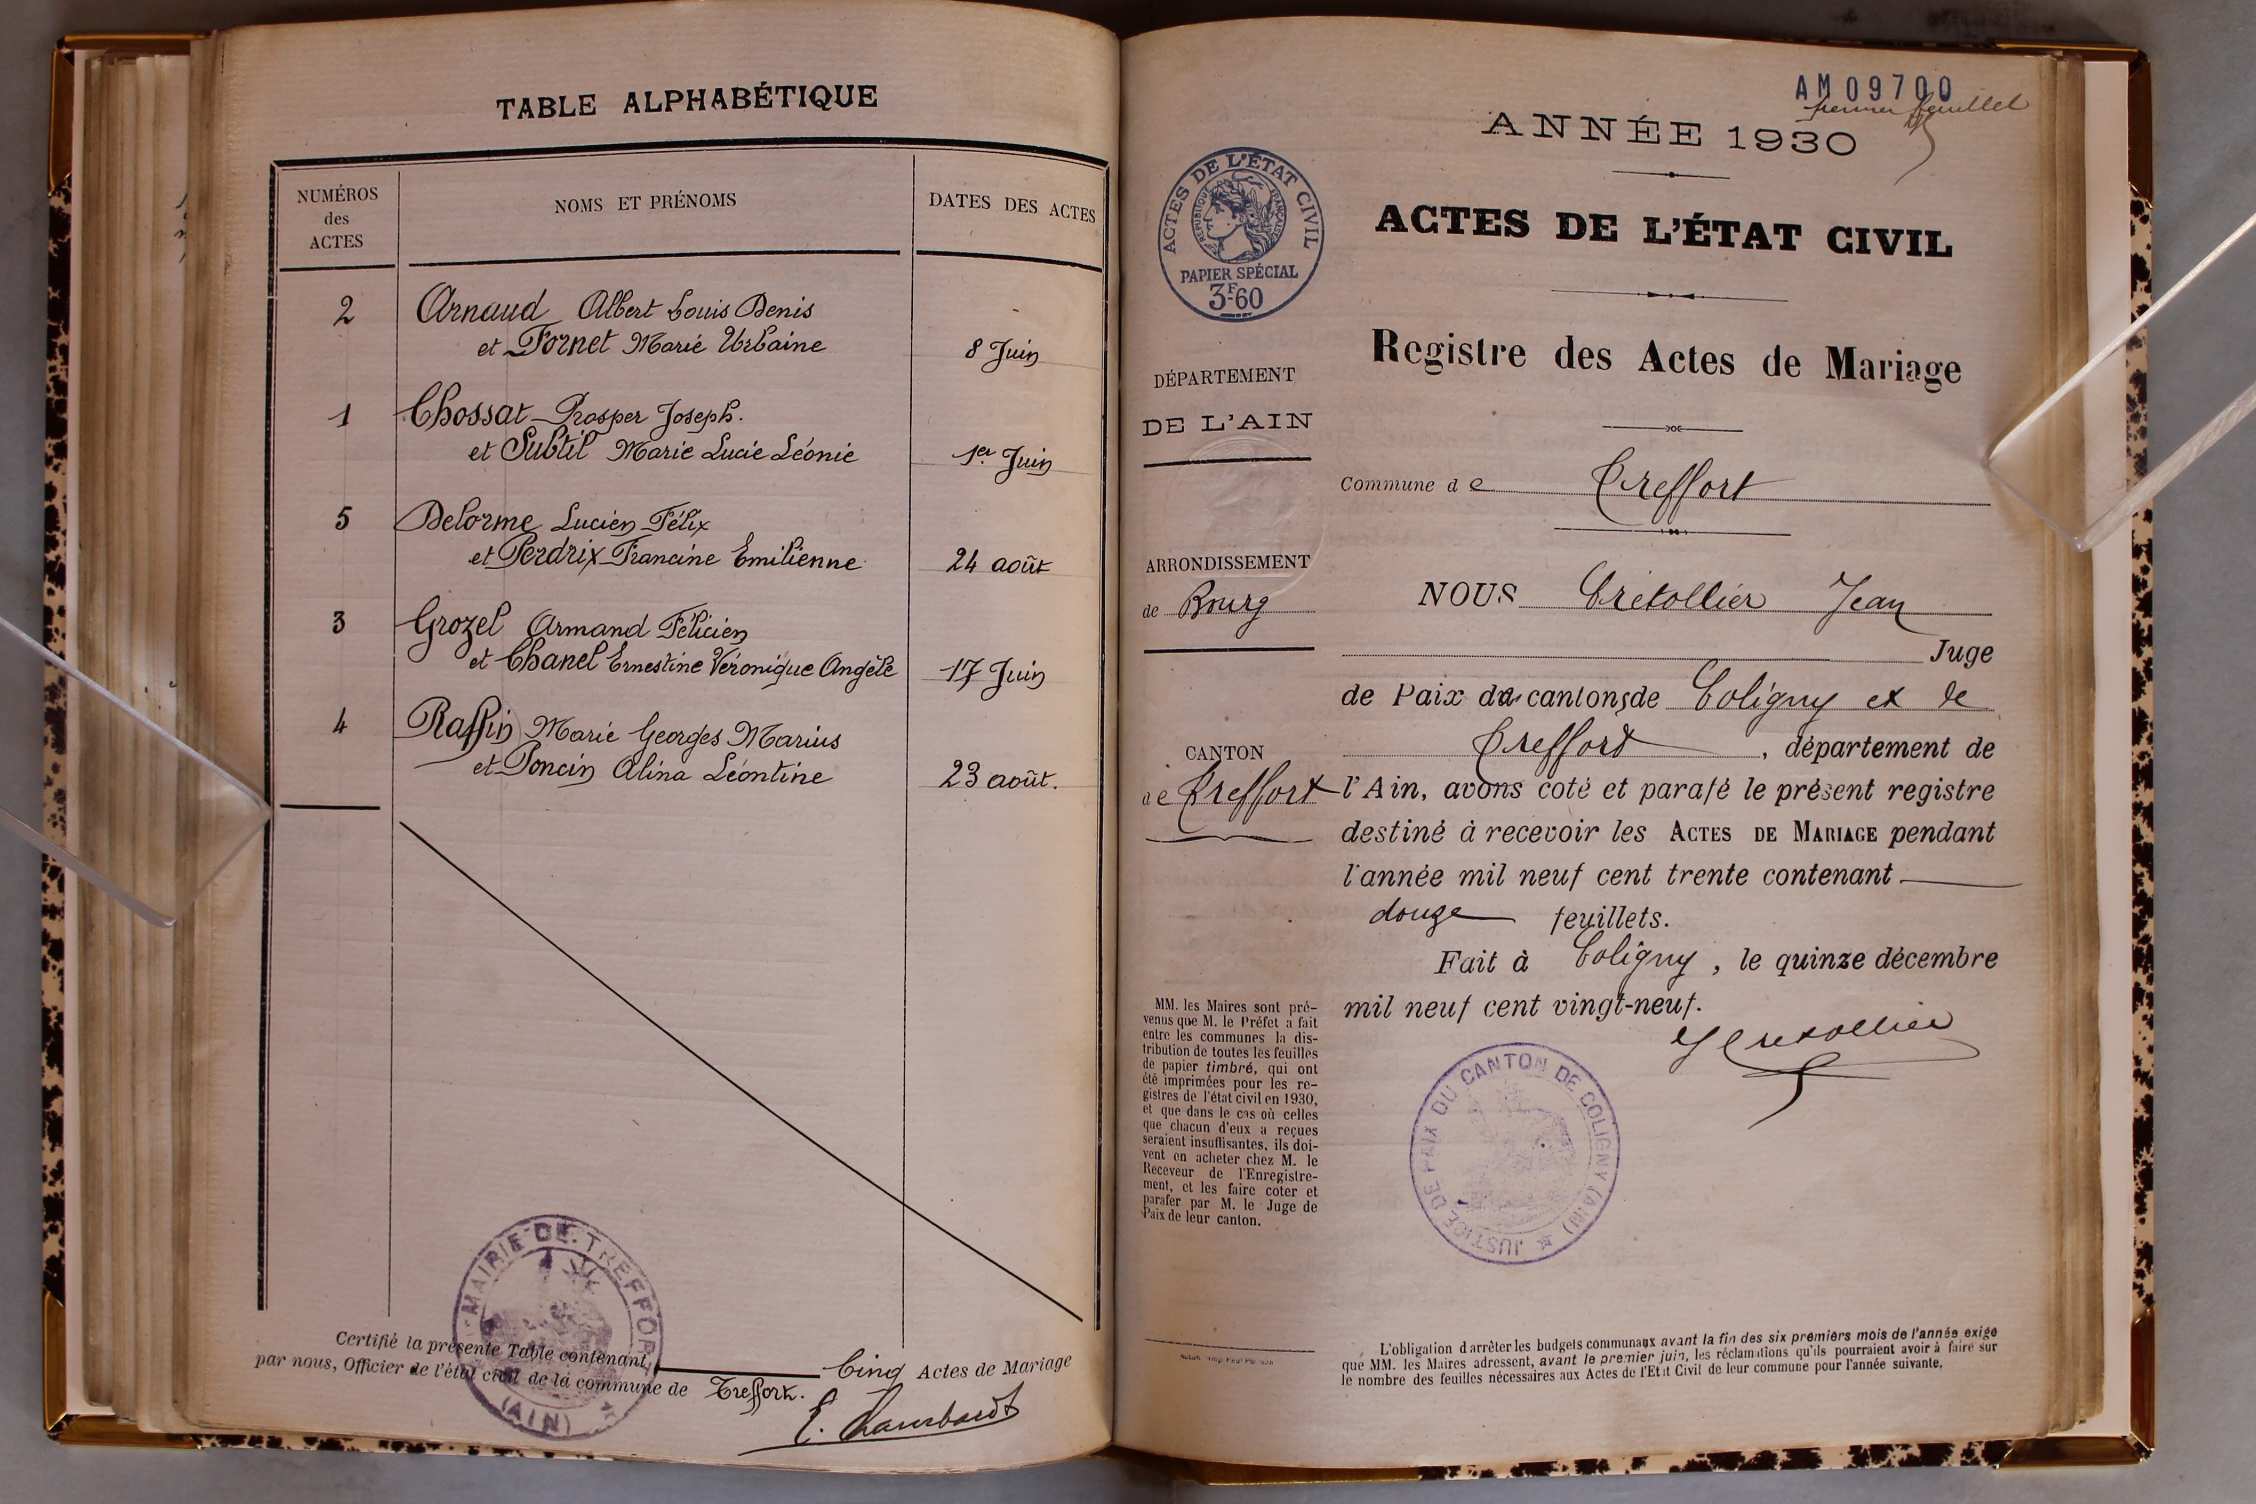 TABLE ALPHABÉTIQUE
NUMÉROS
des
ACTES
NOMS ET PRÉNOMS
DATES DES ACTES
2 Arnaud Albert Louis Denis
et Fornet Marie Urbaine 8 Juin
1 Chossat Prosper Joseph.
et Subtil Marie Lucie Léonie 1er Juin
5 Delorme Lucien Félix
et Perdrix Francine Emilienne 24 août
3 Grozel Armand Félicien
et Chanel Ernestine Véronique Angèle 17 Juin
4 Raffin Marie Georges Marius
et Poncin Alina Léontine 23 août.
MAIRIE DE TREFFORT
(AIN)
Certifié la présente Table contenant Cinq Actes de Mariage
par nous, Officier de l'état civil de la commune de Treffort.
E. Chambardt
AM09700
premier feuillet
ANNÉE 1930
ACTES DE L'ÉTAT CIVIL
RÉPUBLIQUE FRANÇAISE
PAPIER SPÉCIAL
3F60
ACTES DE L'ÉTAT CIVIL
Registre des Actes de Mariage
DÉPARTEMENT
DE L'AIN
Commune de Treffort
ARRONDISSEMENT
de Bourg
CANTON
de Treffort
NOUS Crétollier Jean
Juge
de Paix du cantons de Coligny et de
Treffort, département de
l'Ain, avons coté et parafé le présent registre
destiné à recevoir les ACTES DE MARIAGE pendant
l'année mil neuf cent trente contenant
douze feuillets.
Fait à Coligny, le quinze décembre
mil neuf cent vingt-neuf.
J Cretollier
JUSTICE DE PAIX DU CANTON DE COLIGNY (AIN)
MM. les Maires sont pré-
venus que M. le Préfet a fait
entre les communes la dis-
tribution de toutes les feuilles
de papier timbré, qui ont
été imprimées pour les re-
gistres de l'état civil en 1930,
et que dans le cas où celles
que chacun d'eux a reçues
seraient insuffisantes, ils doi-
vent en acheter chez M. le
Receveur de l'Enregistre-
ment, et les faire coter et
parafer par M. le Juge de
Paix de leur canton.
L'obligation d'arrêter les budgets communaux avant la fin des six premiers mois de l'année exige
que MM. les Maires adressent, avant le premier juin, les réclamations qu'ils pourraient avoir à faire sur
le nombre des feuilles nécessaires aux Actes de l'Etat Civil de leur commune pour l'année suivante.